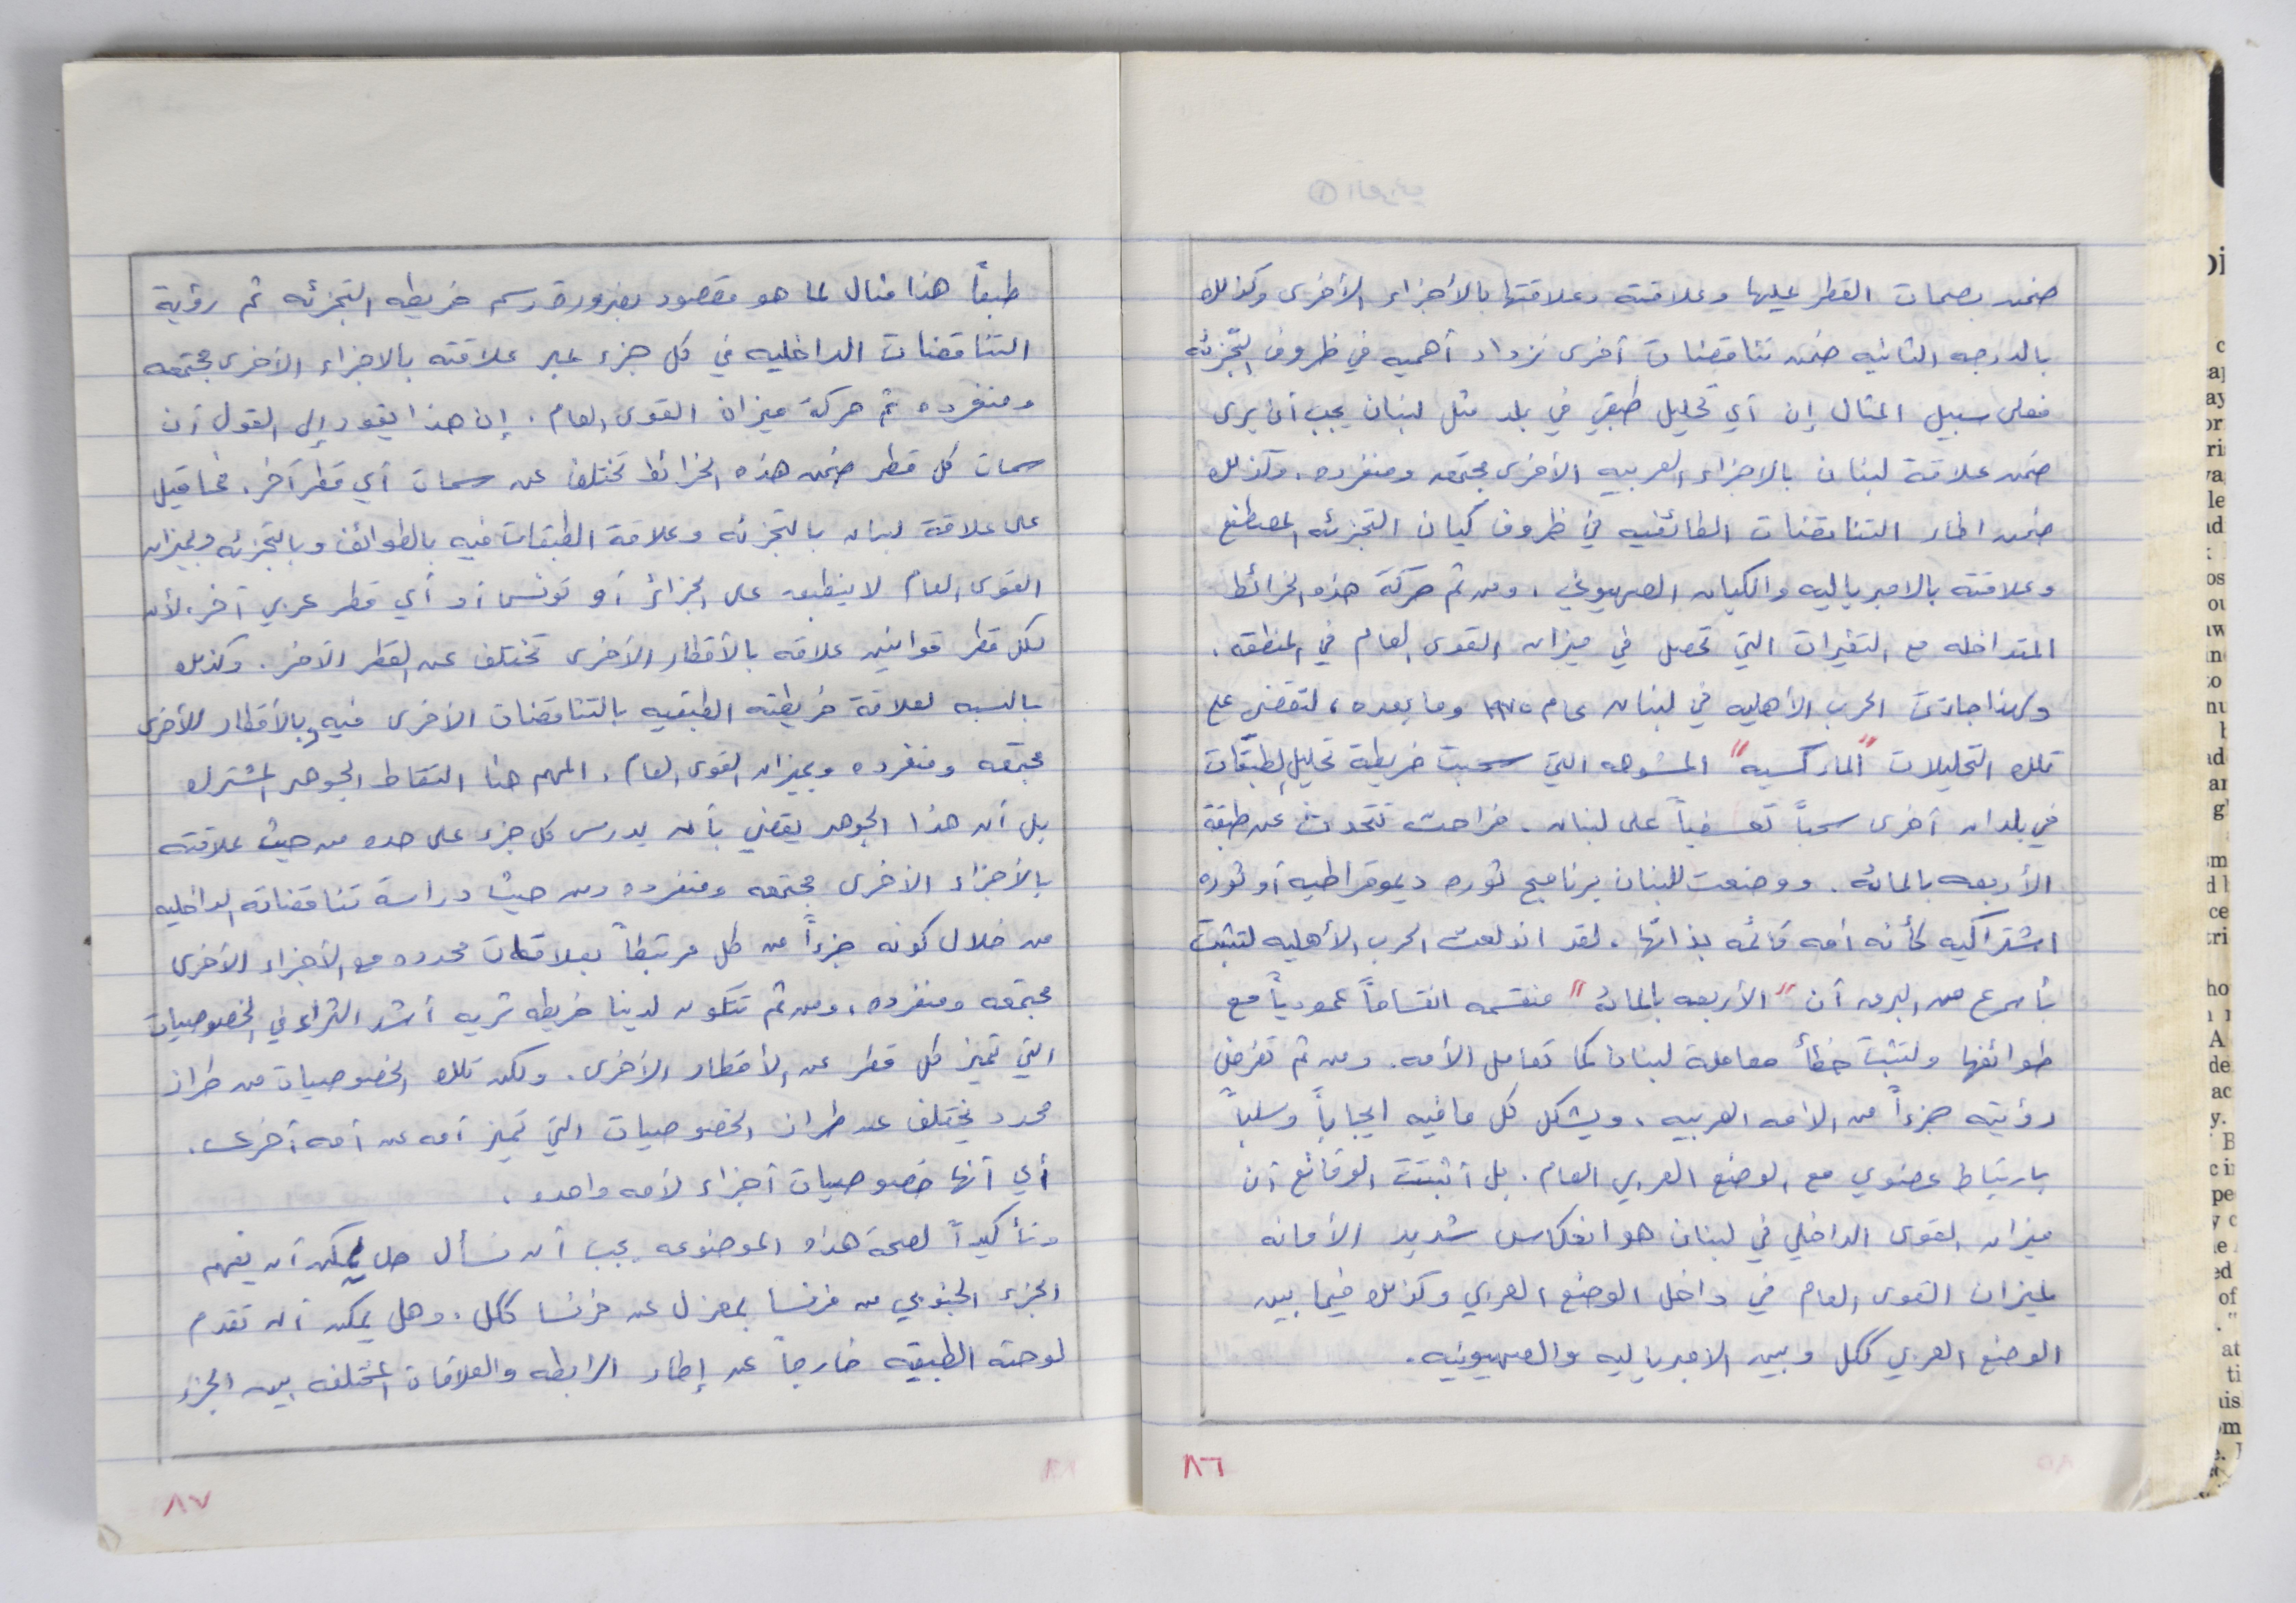 ضمن بصمات القطر عليها وعلاقته وعلاقتها بالأجزاء الأخرى وكذلك
بالدرجه الثانيه ضمن تناقضات أخرى تزداد أهميه في ظروف التجزئه
فعلى سبيل المثال إن أي تحليل طبقي في بلد مثل لبنان يجب أن يرى
ضمن علاقة لبنان بالاجزاء العربيه الأخرى مجتمعه ومنفرده. وكذلك
ضمن اطار التناقضات الطائفيه في ظروف كيان التجزئه المصطنع
وعلاقته بالامبرياليه والكيان الصهيوني، ومن ثم حركة هذه الخرائط
المتداخله مع التغيرات التي تحصل في ميزان القوى العام في المنطقه.
وهكذا جاءت الحرب الأهليه في لبنان عام ١٩٧٥ وما بعده، لتقضي على
تلك التحليلات "الماركسيه" المشوهه التي سحبت خريطة تحليل الطبقات
في بلدان أخرى سحباً تعسفياً على لبنان. فراحت تتحدث عن طبقة
الأربعه بالمائه. ووضعت للبنان برنامج ثوره ديموقراطيه أو ثوره
اشتراكيه كأنه أمه قائمه بذاتها، لقد اندلعت الحرب الأهليه لتثبت
بأسرع من البرق أن "الأربعه بالمائه" منقسمه انقساماً عمودياً مع
طوائفها ولتثبت خطأ معاملة لبنان كما تعامل الأمه. ومن ثم تفرض
رؤيته جزءاً من الامه العربيه، ويشكل كل مافيه ايجاباً وسلباً
بارتباط عضوي مع الوضع العربي العام. بل أثبتت الوقائع أن
ميزان القوى الداخلي في لبنان هو انعكاس شديد الأمانه
لميزان القوى العام في داخل الوضع العربي وكذلك فيما بين
الوضع العربي ككل وبين الامبرياليه والصهيونيه.
٨٦
طبعاً هذا مثال لما هو مقصود بضرورة رسم خريطه التجزئه ثم رؤية
التناقضات الداخليه في كل جزء عبر علاقته بالاجزاء الأخرى مجتمعه
ومنفرده ثم حركة ميزان القوى العام. إن هذا يقود إلى القول أن
سمات كل قطر ضمن هذه الخرائط تختلف عن سمات أي قطر آخر. فما قيل
على علاقة لبنان بالتجزئه وعلاقة الطبقات فيه بالطوائف وبالتجزئه وبميزان
القوى العام لا ينطبق على الجزائر أو تونس أو أي قطر عربي آخر، لأن
لكل قطر قوانين علاقه بالأقطار الأخرى تختلف عن القطر الآخر. وكذلك
بالنسبه لعلاقة خريطته الطبقيه بالتناقضات الأخرى فيه وبالأقطار الأخرى
مجتمعه ومنفرده وبميزان القوى العام. المهم هنا التقاط الجوهر المشترك
بل أن هذا الجوهر يقضي بأن يدرس كل جزء على حده من حيث علاقته
بالأجزاء الأخرى مجتمعه ومنفرده ومن حيث دراسة تناقضاته الداخليه
من خلال كونه جزءاً من كل مرتبطاً بعلاقات محدده مع الأجزاء الأخرى
مجتمعه ومنفرده، ومن ثم تتكون لدينا خريطه ثريه أشد الثراء في الخصوصيات
التي تميز كل قطر عن الأقطار الأخرى. ولكن تلك الخصوصيات من طراز
محدد يختلف عن طراز الخصوصيات التي تميز أمه عن أمه أخرى.
أي أنها خصوصيات أجزاء لأمه واحده.
وتأكيداً لصحة هذه الموضوعه يجب أن نسأل هل يمكن أن يفهم
الجزء الجنوبي من فرنسا بمعزل عن فرنسا ككل. وهل يمكن أن تقدم
لوحته الطبقيه خارجاً عن إطار الرابطه والعلاقات المختلفه بين الجزء
٨٧